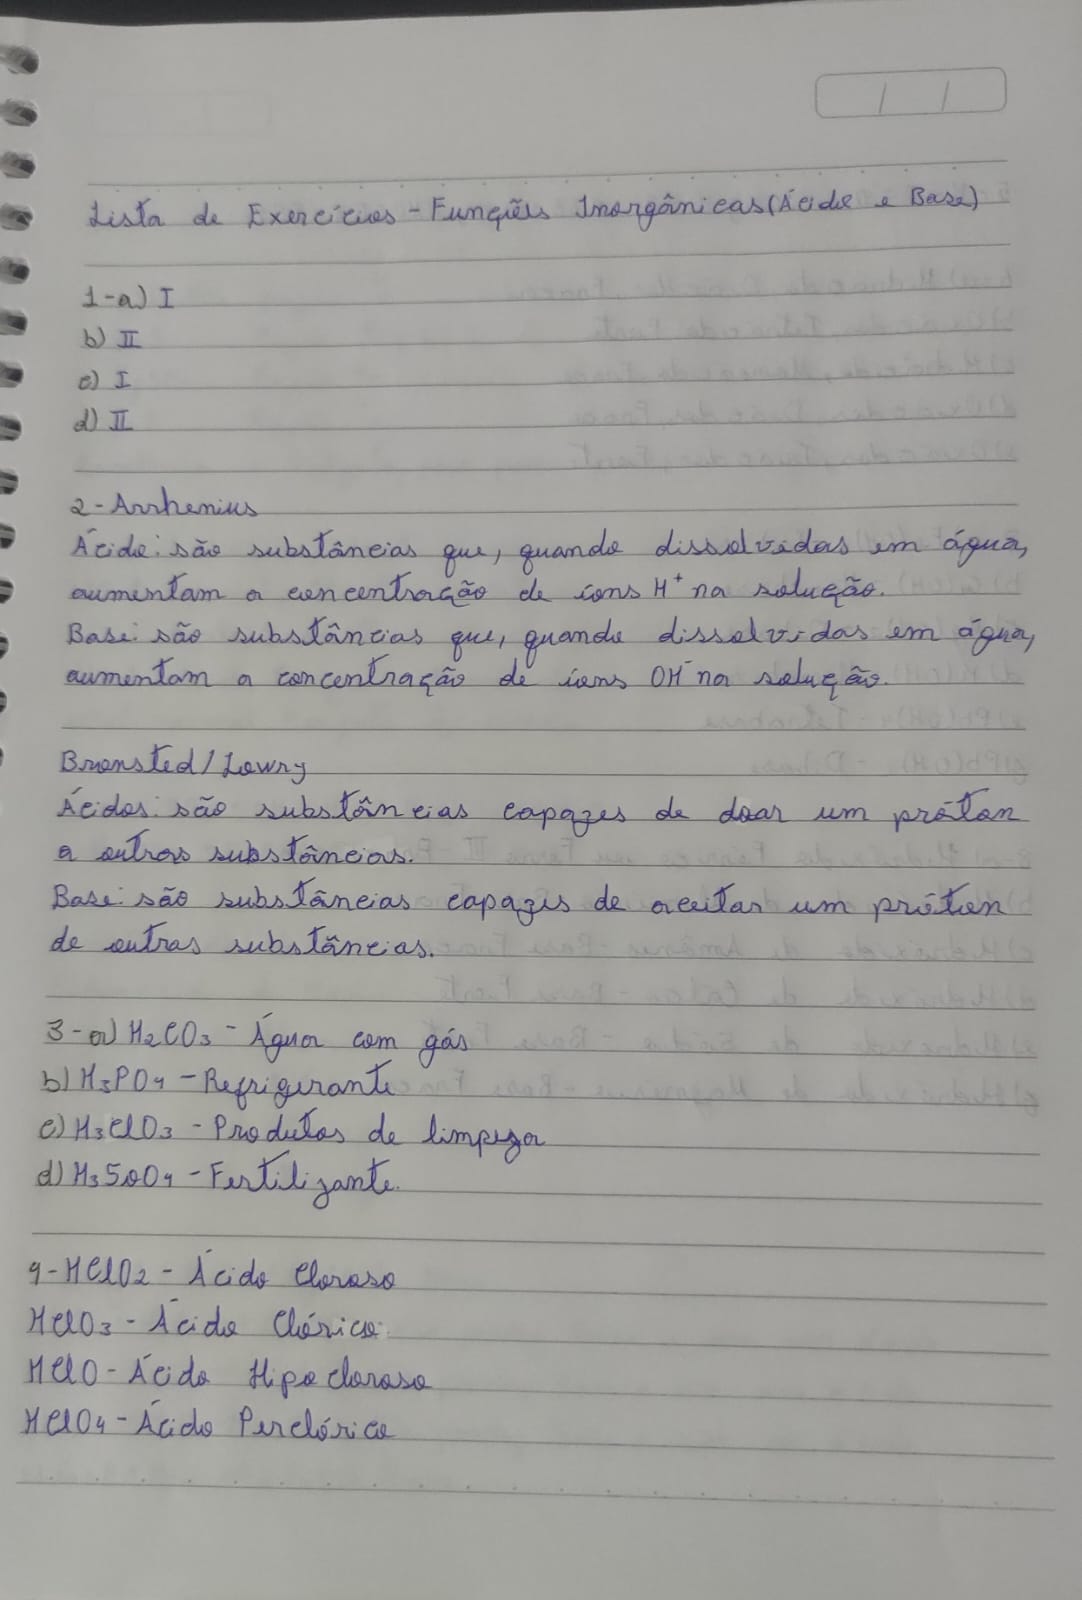 Lista de Exercícios - Funções Inorgânicas (Ácido e Base)
1-a) I
b) II
c) I
d) II
2- Arrhenius
Ácido: são substâncias que, quando dissolvidas em água,
aumentam a concentração de íons H⁺ na solução.
Base: são substâncias que, quando dissolvidas em água,
aumentam a concentração de íons OH⁻ na solução.
Bronsted/Lowry
Ácidos: são substâncias capazes de doar um próton
a outras substâncias.
Base: são substâncias capazes de aceitar um próton
de outras substâncias.
3-a) H₂CO₃ - Água com gás
b) H₃PO₄ - Refrigerante
c) H₃ClO₃ - Produtos de limpeza
d) H₃SO₄ - Fertilizante.
4- HClO₂ - Ácido Cloroso
HClO₃ - Ácido Clórico
HClO - Ácido Hipocloroso
HClO₄ - Ácido Perclórico